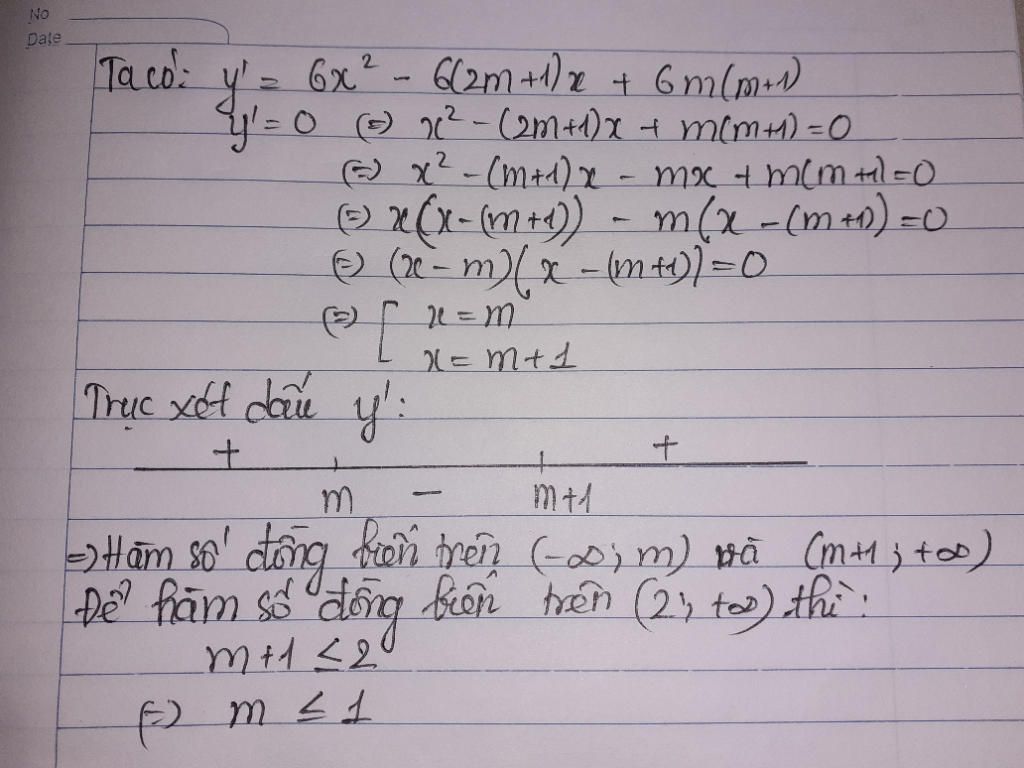 No
Date
Ta có: y' = 6x² - 6(2m+1)x + 6m(m+1)
y' = 0 (=) x² - (2m+1)x + m(m+1) = 0
(=) x² - (m+1)x - mx + m(m+1) = 0
(=) x(x-(m+1)) - m(x-(m+1)) = 0
(=) (x-m)(x-(m+1)) = 0
(=) [ x = m
x = m+1
Trục xét dấu y':
+ +
m - m+1
=) Hàm số đồng biến trên (-∞; m) và (m+1; +∞)
Để hàm số đồng biến trên (2; +∞) thì:
m+1 ≤ 2
(=) m ≤ 1